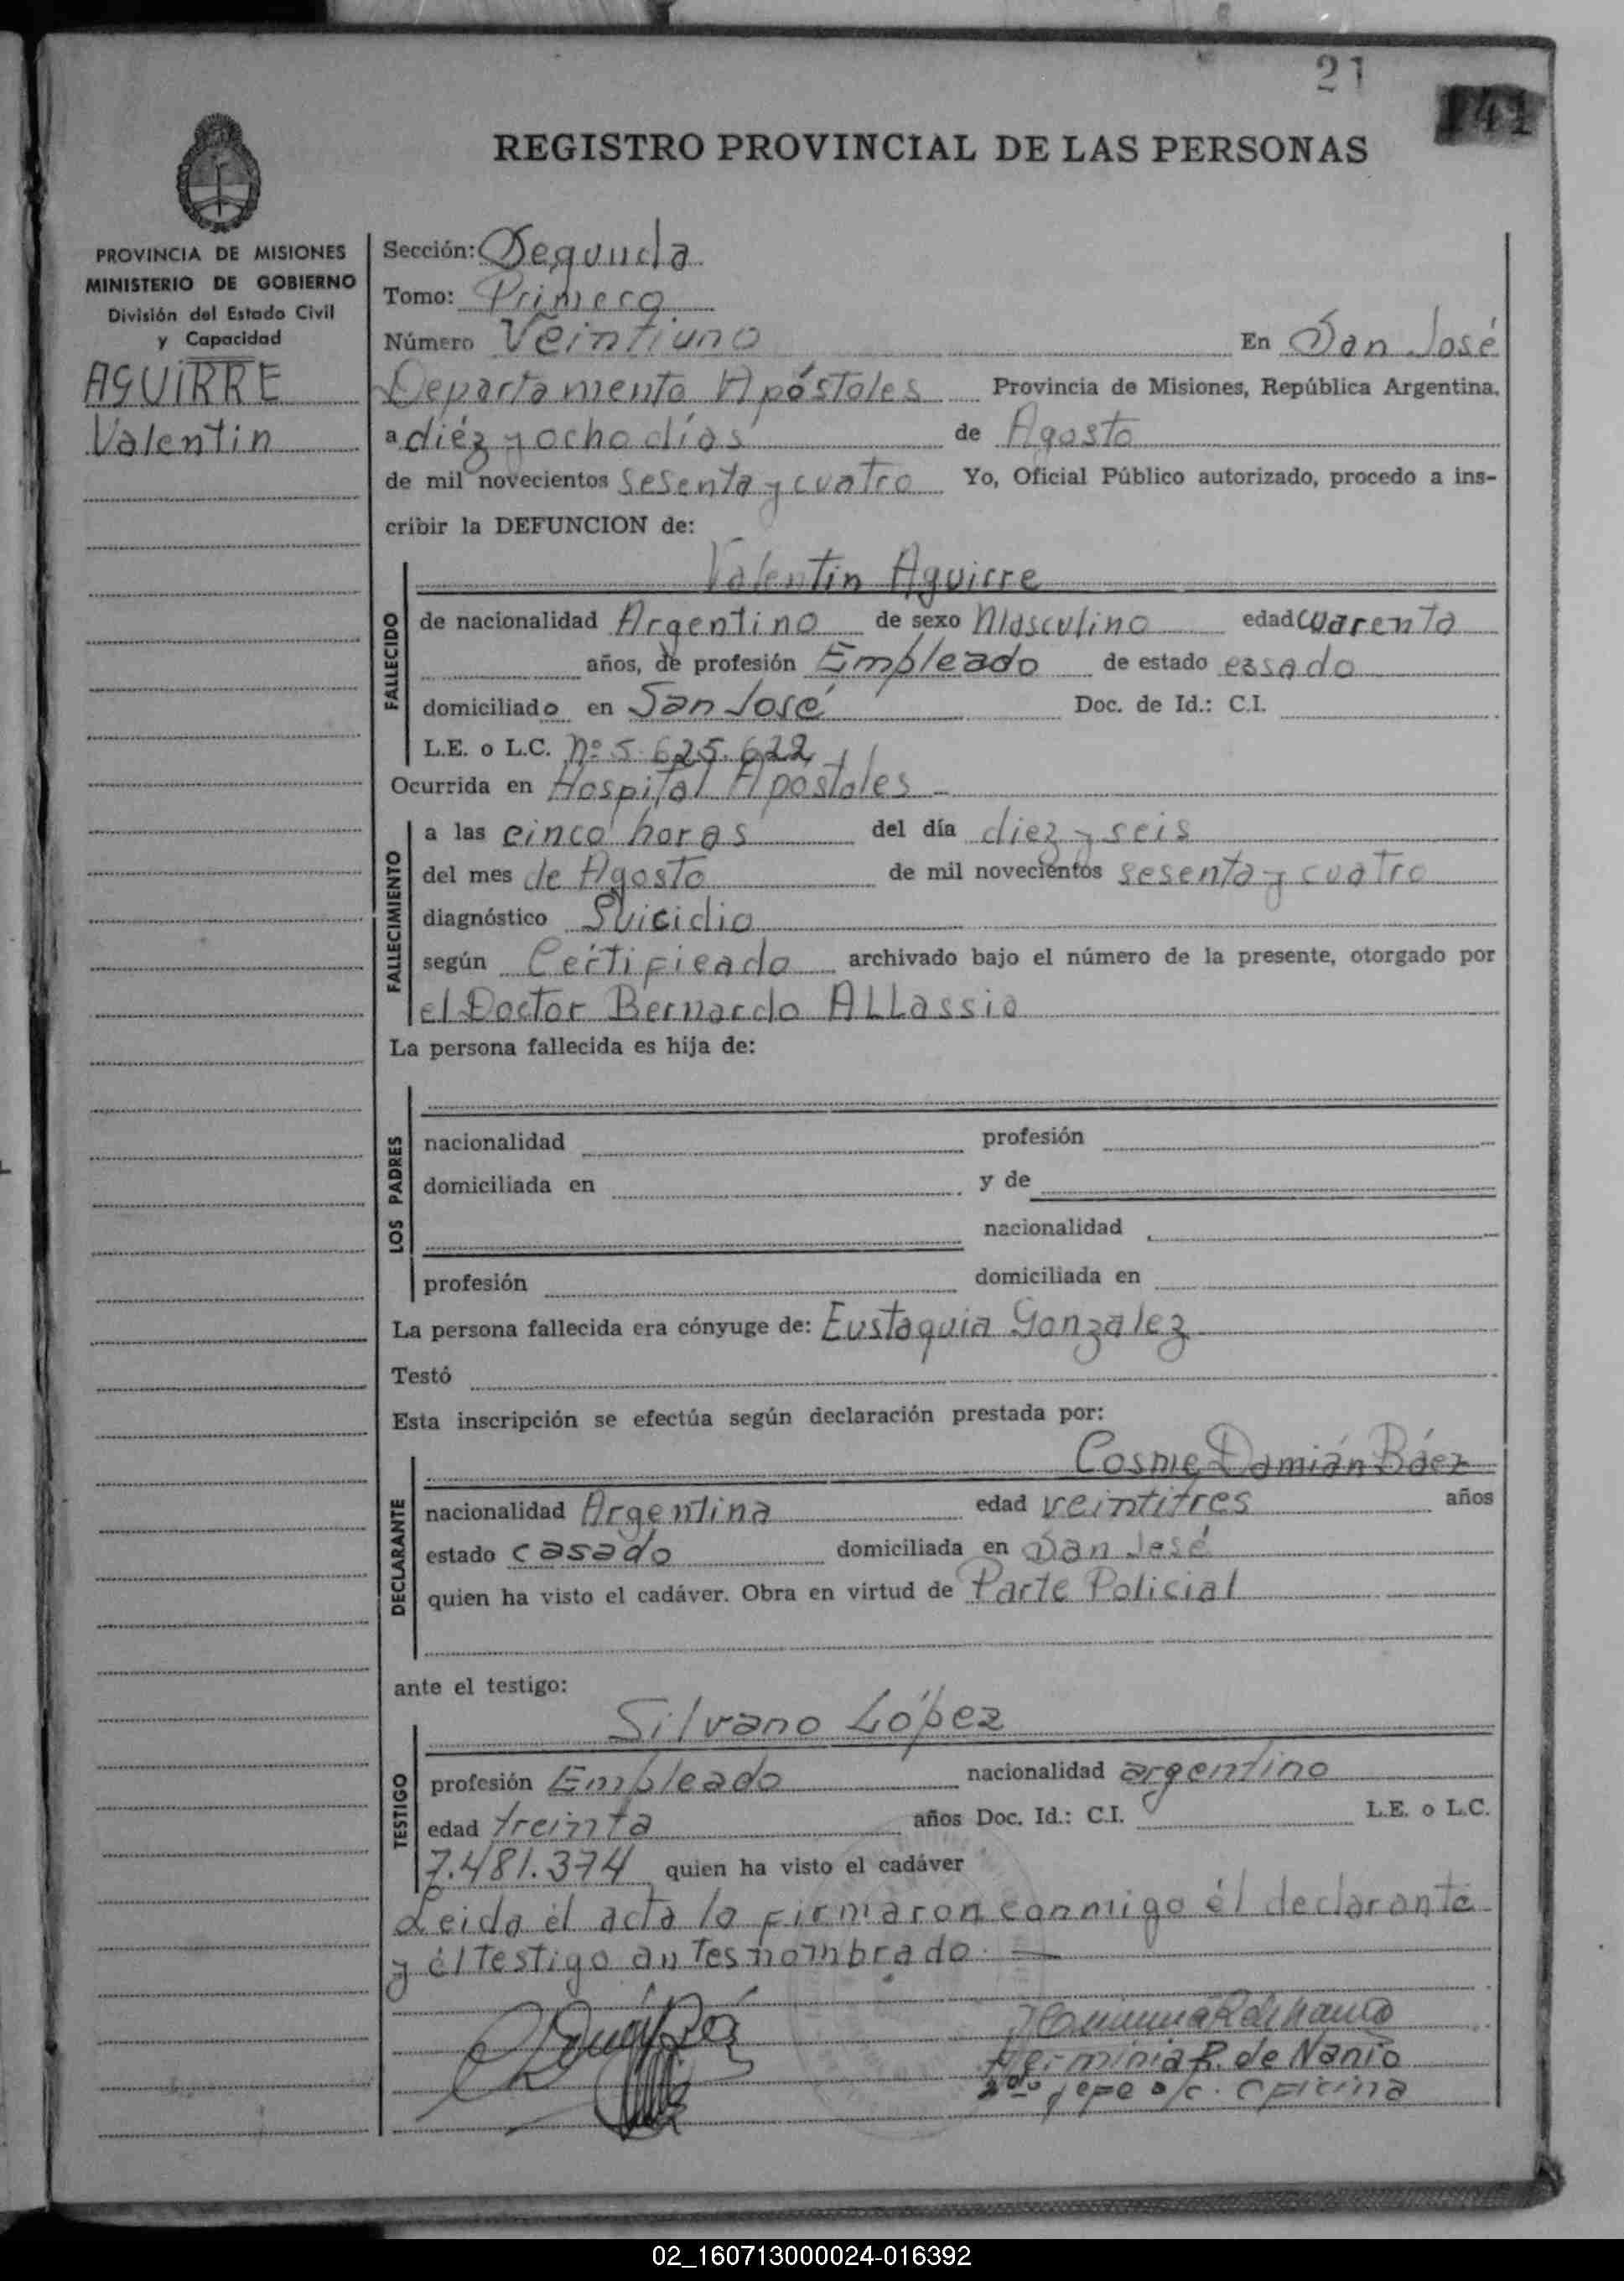 21
141
REGISTRO PROVINCIAL DE LAS PERSONAS
PROVINCIA DE MISIONES
MINISTERIO DE GOBIERNO
División del Estado Civil
y Capacidad
AGUIRRE
Valentin
Sección: Segunda
Tomo: Primero
Número Veintiuno En San José
Departamento Apóstoles Provincia de Misiones, República Argentina,
a diéz y ocho días de Agosto
de mil novecientos sesenta y cuatro Yo, Oficial Público autorizado, procedo a ins-
cribir la DEFUNCION de:
Valentin Aguirre
FALLECIDO
de nacionalidad Argentino de sexo Masculino edad cuarenta
años, de profesión Empleado de estado casado
domiciliado en San José Doc. de Id.: C.I.
L.E. o L.C. nº 5.625.622
Ocurrida en Hospital Apostoles
FALLECIMIENTO
a las cinco horas del día diez y seis
del mes de Agosto de mil novecientos sesenta y cuatro
diagnóstico Suicidio
según Certificado archivado bajo el número de la presente, otorgado por
el Doctor Bernardo ALLassia
La persona fallecida es hija de:
LOS PADRES
nacionalidad profesión
domiciliada en y de
nacionalidad
profesión domiciliada en
La persona fallecida era cónyuge de: Eustaquia Gonzalez
Testó
Esta inscripción se efectúa según declaración prestada por:
Cosme Damián Báez
DECLARANTE
nacionalidad Argentina edad veintitres años
estado casado domiciliada en San José
quien ha visto el cadáver. Obra en virtud de Parte Policial
ante el testigo:
Silvano López
TESTIGO
profesión Empleado nacionalidad argentino
edad treinta años Doc. Id.: C.I. L.E. o L.C.
7.481.374 quien ha visto el cadáver
Leida el acta la firmaron conmigo él declarante
y él testigo antes nombrado.
Herminia R. de Nanio
2do jefe a/c. Oficina
02_160713000024-016392